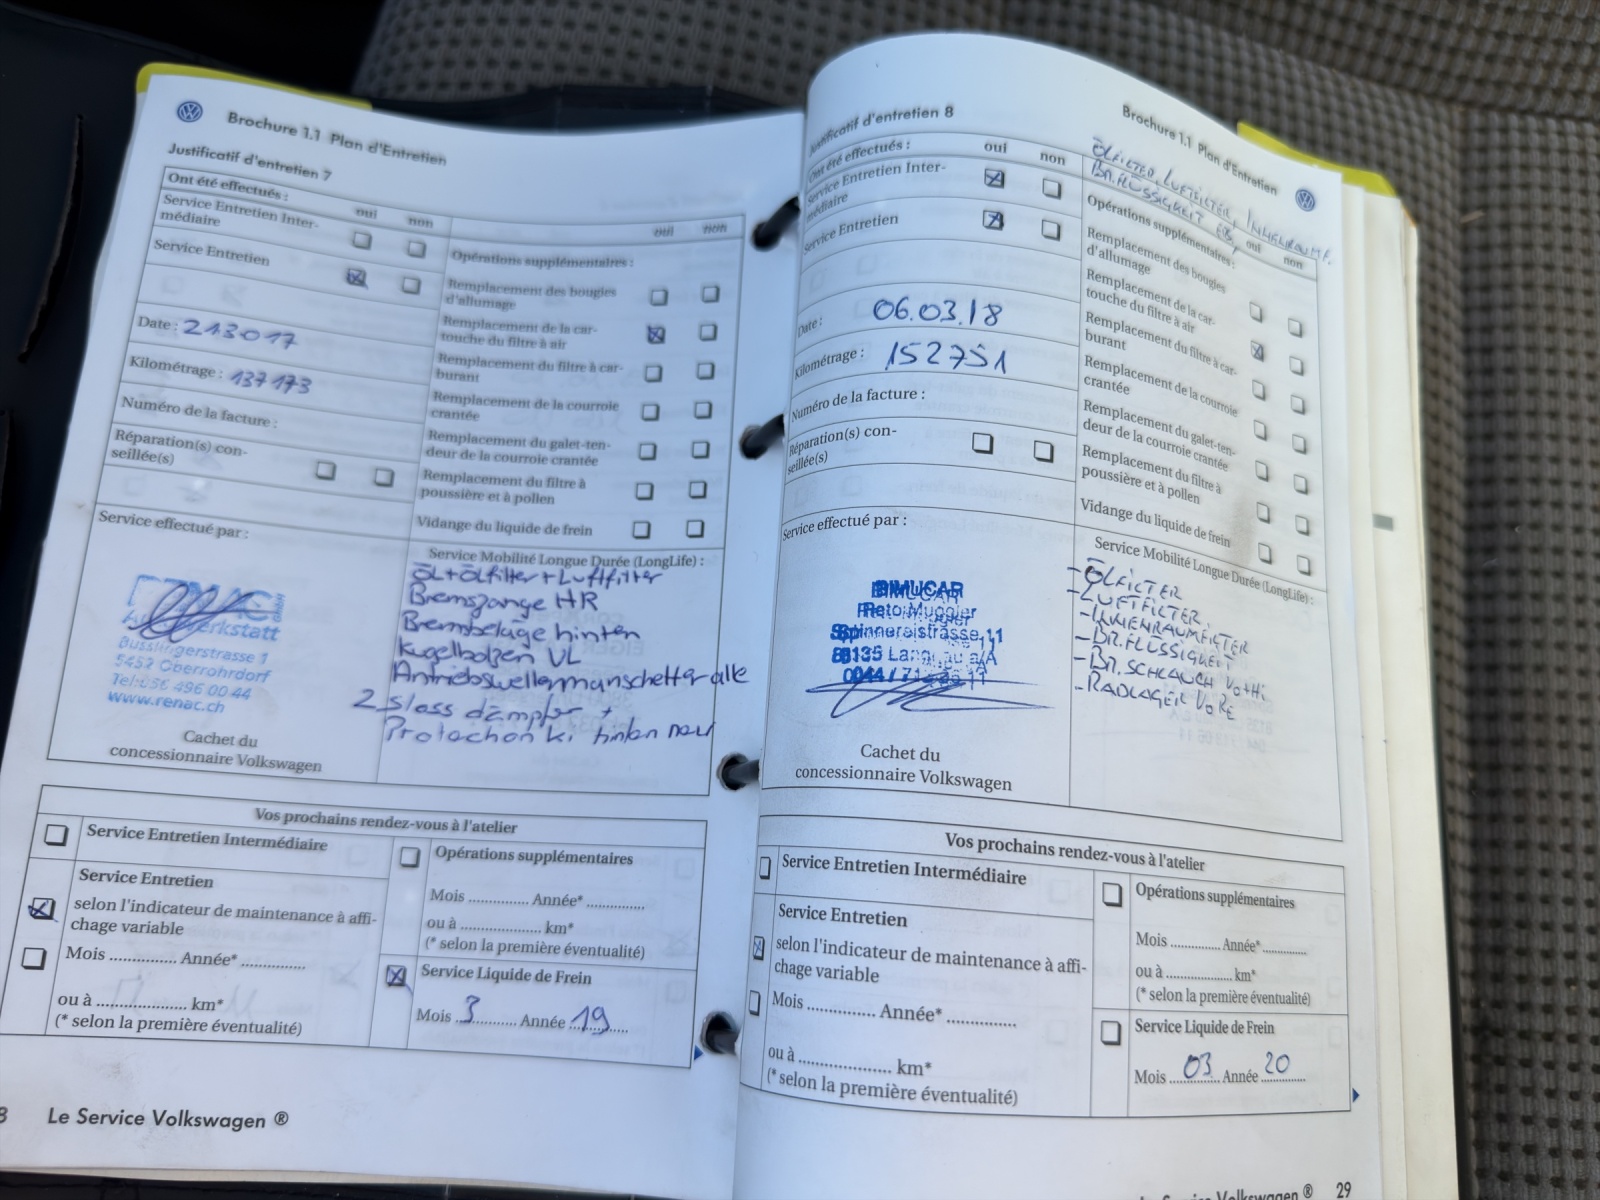 Brochure 1.1 Plan d'Entretien
Justificatif d'entretien 7
Ont été effectués :
oui non
Service Entretien Inter-
médiaire
Service Entretien
Date : 213017
Kilométrage : 137173
Numéro de la facture :
Réparation(s) con-
seillée(s)
oui non
Opérations supplémentaires :
Remplacement des bougies
d'allumage
Remplacement de la car-
touche du filtre à air
Remplacement du filtre à car-
burant
Remplacement de la courroie
crantée
Remplacement du galet-ten-
deur de la courroie crantée
Remplacement du filtre à
poussière et à pollen
Vidange du liquide de frein
Service effectué par :
Busslingerstrasse 1
5452 Oberrohrdorf
Tel: 056 496 00 44
www.renac.ch
Cachet du
concessionnaire Volkswagen
Service Mobilité Longue Durée (LongLife) :
ÖL+Ölfilter+Luftfilter
Bremszange HR
Bremsbeläge hinten
Kugelbolzen VL
Antriebswellenmanschetten alle
2 Stossdämpfer +
hinten neu
Vos prochains rendez-vous à l'atelier
Service Entretien Intermédiaire
Service Entretien
selon l'indicateur de maintenance à affi-
chage variable
Mois ............... Année* ..............
ou à .................... km*
(* selon la première éventualité)
Opérations supplémentaires
Mois ............ Année* .............
ou à .................. km*
(* selon la première éventualité)
Service Liquide de Frein
Mois 3 Année 19
8 Le Service Volkswagen ®
Brochure 1.1 Plan d'Entretien
Justificatif d'entretien 8
Ont été effectués :
oui non
Service Entretien Inter-
médiaire
Service Entretien
Date : 06.03.18
Kilométrage : 152751
Numéro de la facture :
Réparation(s) con-
seillée(s)
ÖLFILTER, LUFTFILTER, INNENRAUMF.
BR.FLÜSSIGKEIT
oui non
Opérations supplémentaires :
Remplacement des bougies
d'allumage
Remplacement de la car-
touche du filtre à air
Remplacement du filtre à car-
burant
Remplacement de la courroie
crantée
Remplacement du galet-ten-
deur de la courroie crantée
Remplacement du filtre à
poussière et à pollen
Vidange du liquide de frein
Service effectué par :
BIMUCAR
Reto Muggler
Spinnereistrasse 11
8135 Langnau a/A
Cachet du
concessionnaire Volkswagen
Service Mobilité Longue Durée (LongLife) :
- ÖLFILTER
- LUFTFILTER
- INNENRAUMFILTER
- BR.FLÜSSIGKEIT
- BR.SCHLAUCH VO+HI
- RADLAGER VO RE
Vos prochains rendez-vous à l'atelier
Service Entretien Intermédiaire
Service Entretien
selon l'indicateur de maintenance à affi-
chage variable
Mois ............... Année* ..............
ou à .................... km*
(* selon la première éventualité)
Opérations supplémentaires
Mois ............ Année* .............
ou à .................. km*
(* selon la première éventualité)
Service Liquide de Frein
Mois 03 Année 20
Le Service Volkswagen ® 29